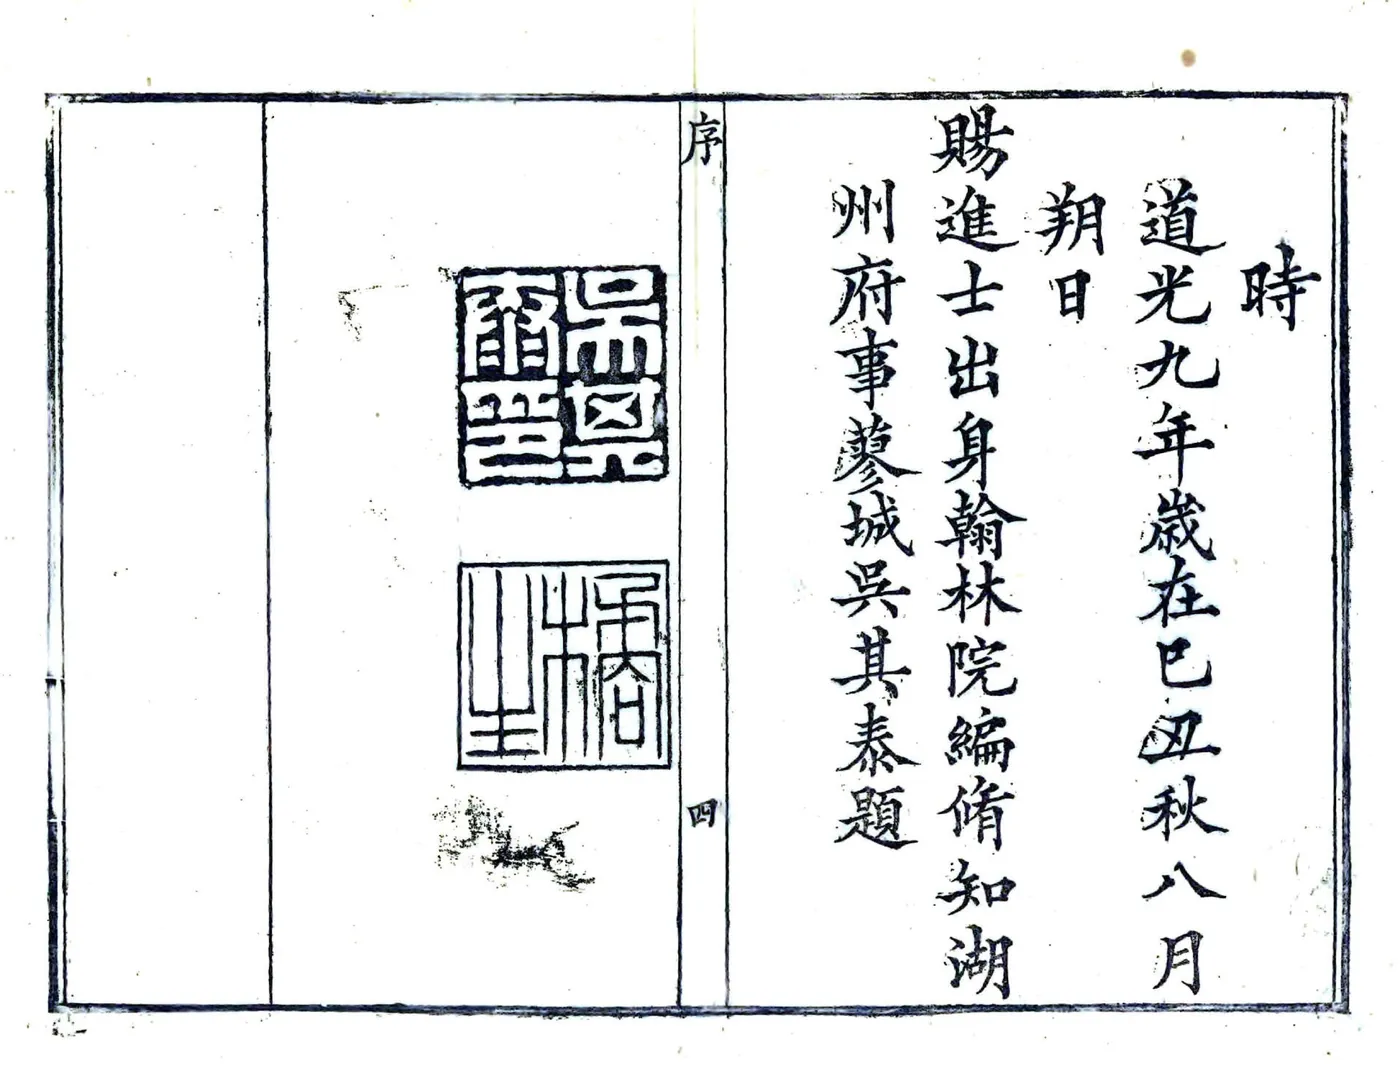 時
道光九年歲在巳丑秋八月
朔日
賜進士出身翰林院編脩知湖
州府事蓼城吳其泰題
序
四
吳其泰印